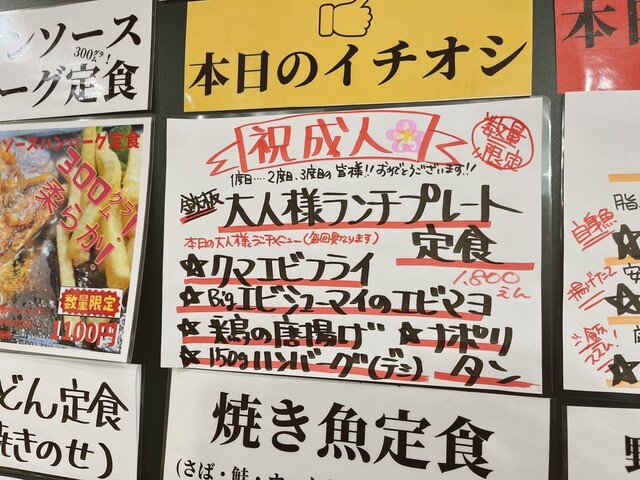 ンソース
300グラム!
ーグ定食
本日のイチオシ
本日
ソースハンバーグ定食
300グラム!
柔らか!
数量限定
1,100円
祝成人
数量
限定
1度目....2度目、3度目の皆様!!おめでとうございます!!
鉄板
大人様ランチプレート
定食
本日の大人様ランチメニュー(毎回異なります)
1,800
えん
☆クマエビフライ
☆Bigエビシューマイのエビマヨ
☆鶏の唐揚げ ☆ナポリ
タン
☆150gハンバーグ(デミ)
脂
自身魚
揚げたて2
ご飯
どん定食
焼きのせ)
焼き魚定食
(さば・鮭・
野